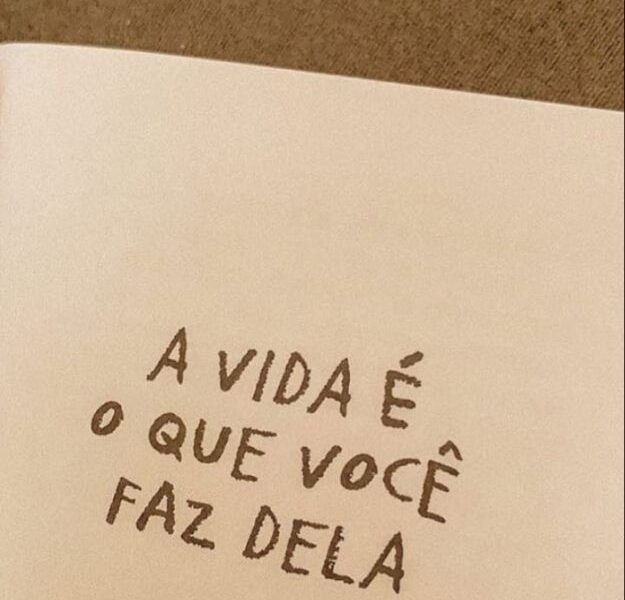 A VIDA É
O QUE VOCÊ
FAZ DELA